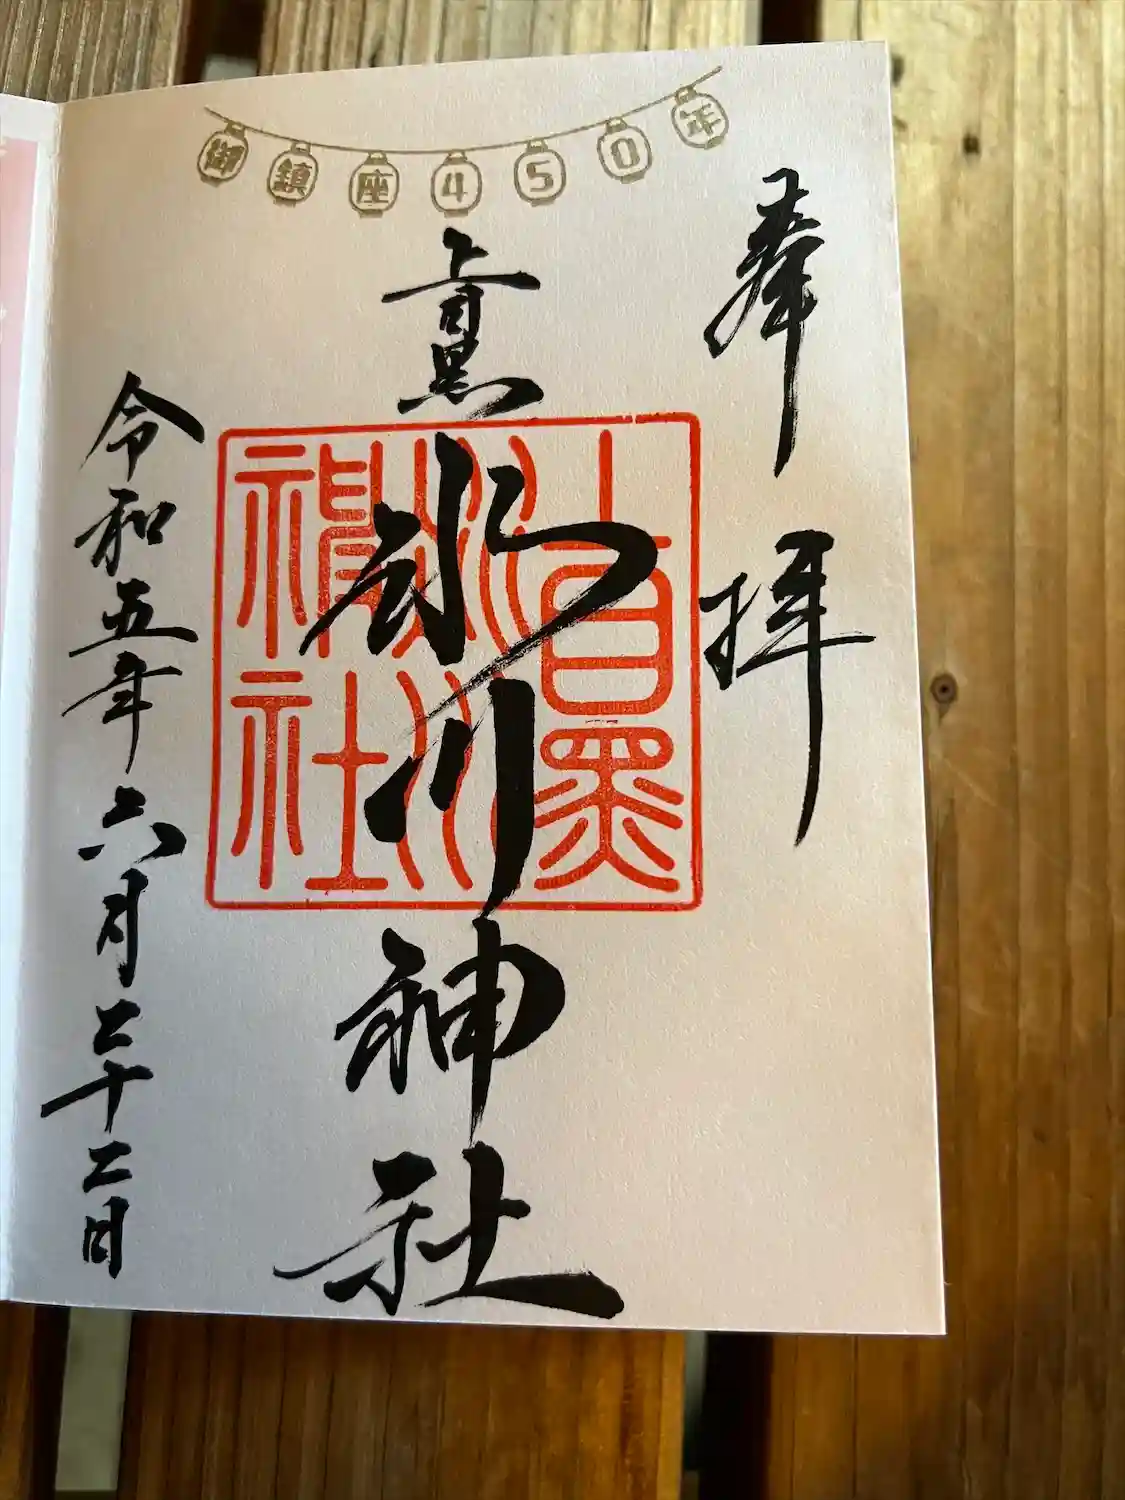 御鎮座450年
奉拝
上目黒
氷川神社
上目黒
氷川
神社
令和五年六月二十二日